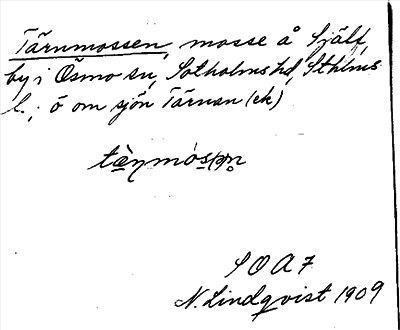 Tärnmossen, mosse å Själf,
by i Ösmo sn, Sotholms hd, Sthlms
l.; ö om sjön Tärnan (ek)
S O A 7
N. Lindqvist 1909